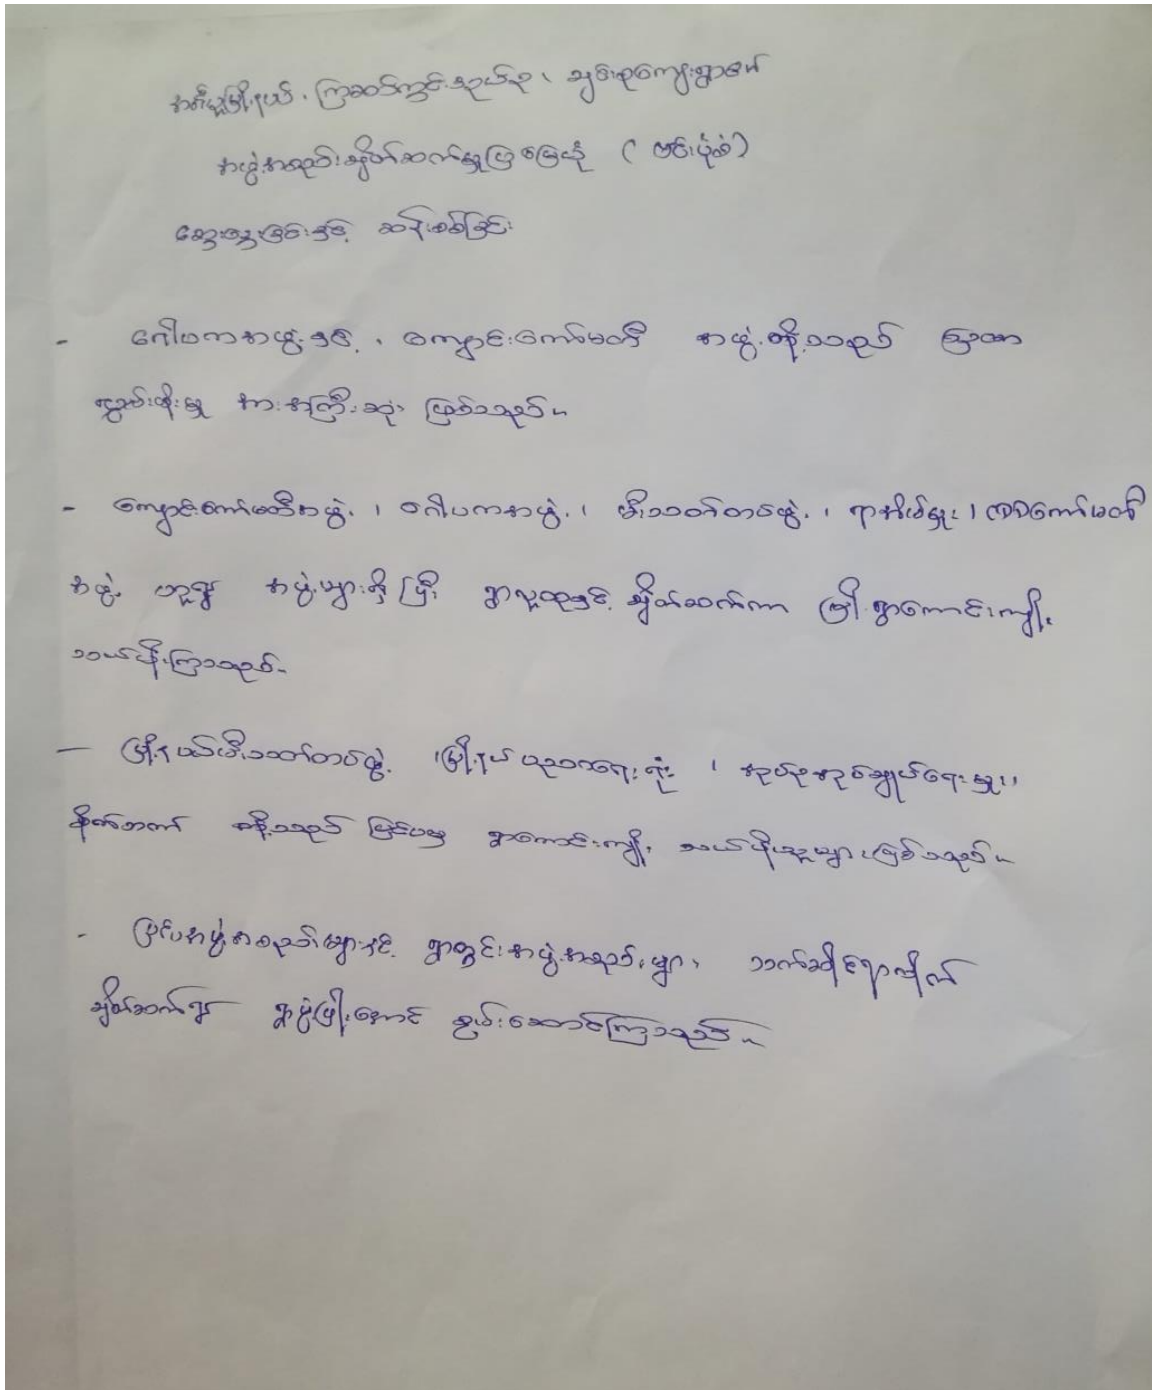 မြို့နယ်၊ ကြာဆပ်ကွင်းအုပ်စု၊ ချင်းစုကျေးရွာ၏
အဖွဲ့အစည်းချိတ်ဆက်မှုပြမြေပုံ ( ဗင်းပုံစံ )
ဆွေးနွေးခြင်းနှင့် ဆန်းစစ်ခြင်း
- ဂေါပကအဖွဲ့နှင့် ၊ ကျောင်းကော်မတီ အဖွဲ့တို့သည် ရွာထဲ
လွှမ်းမိုးမှု အားအကြီးဆုံး ဖြစ်သည်။
- ကျောင်းကော်မတီအဖွဲ့ ၊ ဂေါပကအဖွဲ့ ၊ မီးသတ်တပ်ဖွဲ့ ၊ ရာအိမ်မှူး ၊ ကော်မတီ
အဖွဲ့ ဟူ၍ အဖွဲ့များရှိပြီး ရွာလူထုနှင့် ချိတ်ဆက်ကာ မြို့ရွာကောင်းကျိုး
သယ်ပိုးကြသည်။
- မြို့နယ်မီးသတ်တပ်ဖွဲ့ ၊ မြို့နယ်ပညာရေးရုံး ၊ အုပ်စုအုပ်ချုပ်ရေးမှူး ၊
တို့သည် ပြင်ပမှ ရွာကောင်းကျိုး သယ်ပိုးသူများဖြစ်သည်။
- ပြင်ပအဖွဲ့အစည်းများနှင့် ရွာတွင်းအဖွဲ့အစည်းများ သက်ဆိုင်ရာလိုက်
ချိတ်ဆက်၍ ရွာဖွံ့ဖြိုးအောင် စွမ်းဆောင်ကြသည်။